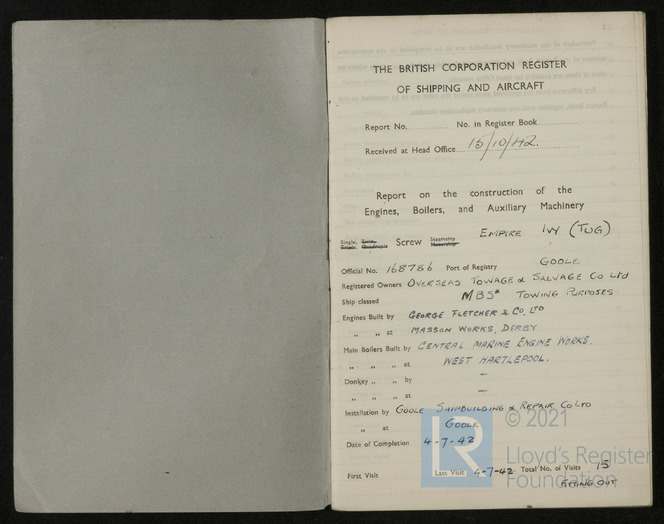 THE BRITISH CORPORATION REGISTER
OF SHIPPING AND AIRCRAFT
Report No. No. in Register Book
Received at Head Office 15/10/42.
Report on the construction of the
Engines, Boilers, and Auxiliary Machinery
Single, Twin, Triple, Quadruple Screw Steamship Motorship EMPIRE IVY (TUG)
Official No. 168786 Port of Registry GOOLE
Registered Owners OVERSEAS TOWAGE & SALVAGE CO LTD
Ship classed MBS* TOWING PURPOSES
Engines Built by GEORGE FLETCHER & CO. LTD
„ „ at MASSON WORKS, DERBY
Main Boilers Built by CENTRAL MARINE ENGINE WORKS.
„ „ „ at WEST HARTLEPOOL.
Donkey „ „ by —
„ „ „ at —
Installation by GOOLE SHIPBUILDING & REPAIR CO LTD
„ at GOOLE
Date of Completion 4-7-42
First Visit Last Visit 4-7-42 Total No. of Visits 15
FITTING OUT
© 2021
Lloyd's Register
Foundation